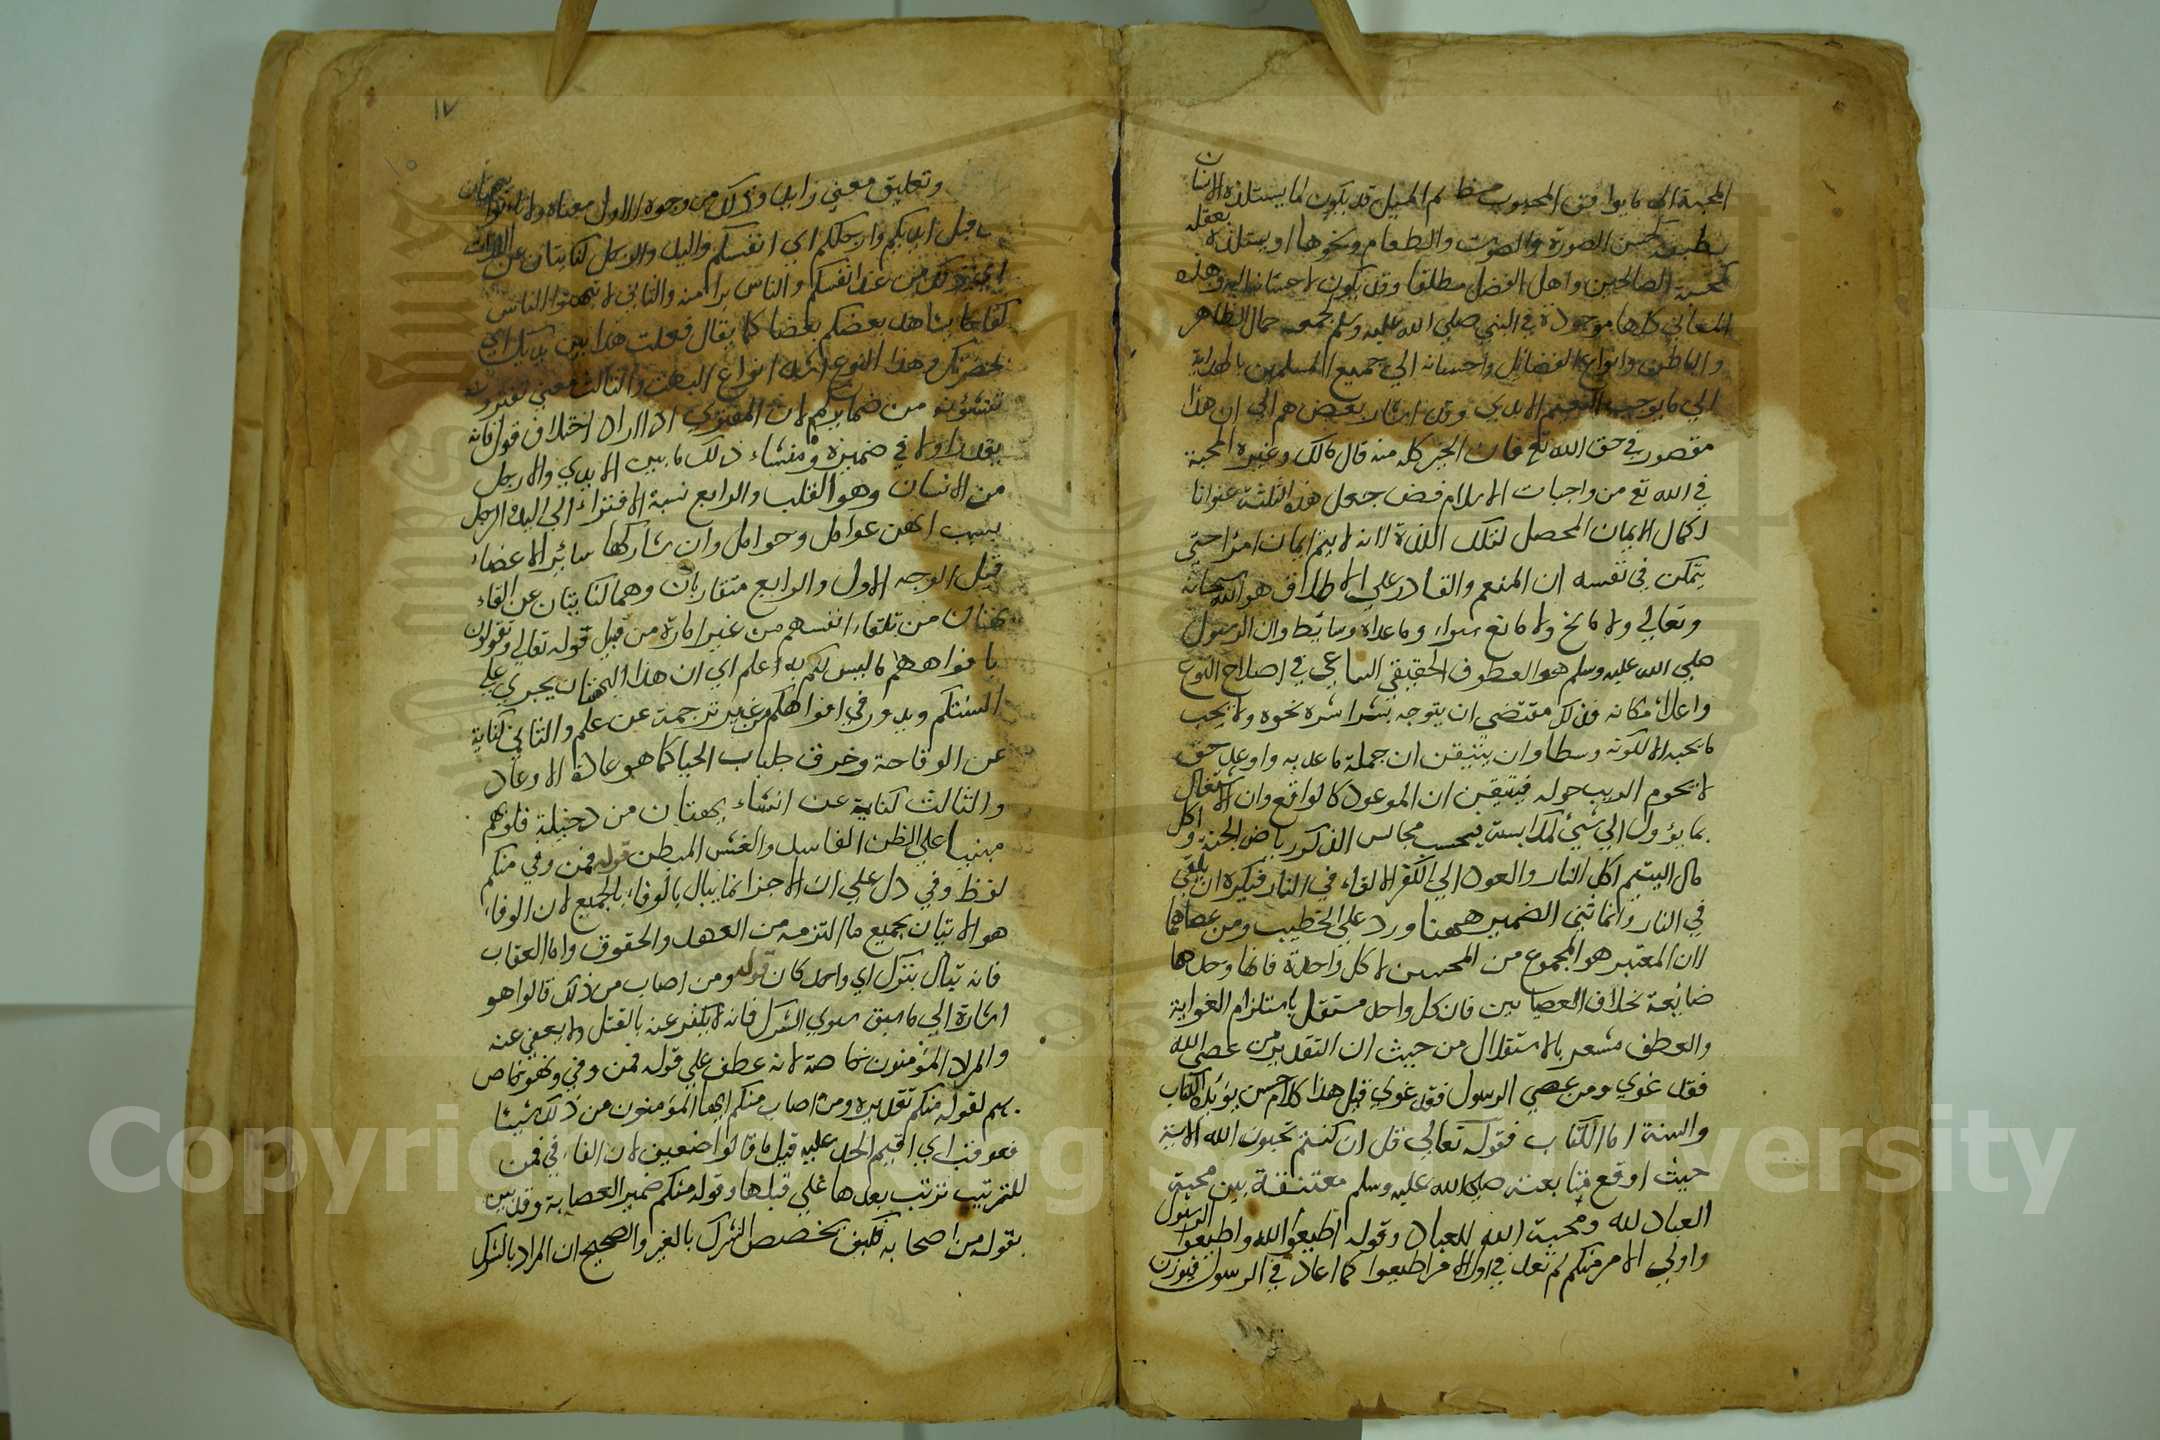 المحبة الى ما يوافق المحبوب ثم الميل قد يكون لما يستلذه الانسان
كحسن الصورة والصوت والطعام ونحوها او يستلذه بعقله
كمحبة الصالحين واهل الفضل مطلقا وقد يكون لاحسانه اليه وهذه
المعاني كلها موجودة في النبي صلى الله عليه وسلم لجمعه جمال الظاهر
والباطن وانواع الفضائل واحسانه الي جميع المسلمين بالهداية
الي ما يوجب النعيم الابدي وقد اشار بعضهم الي ان هذا
مقصور في حق الله تع فان الخير كله منه قال مالك وغيره المحبة
في الله تع من واجبات الاسلام قض جعل هذه الثلثة عنوانا
لكمال الايمان المحصل لتلك اللذة لانه لا يتم ايمان امرا حتي
يتمكن في نفسه ان المنعم والقادر علي الاطلاق هو الله سبحانه
وتعالي ولا مانح ولا مانع سواه وما عداه وسائط وان الرسول
صلي الله عليه وسلم هو العطوف الحقيقي الساعي في اصلاح النوع
واعلاء مكانه فذلك مقتضي ان يتوجه بشراشره نحوه ولا يحب
ما يحبه الا لكونه وسطا وان يتيقن ان جملة ما عد به واوعد حق
لا يحوم الريب حوله فيتيقن ان الموعود كالواقع وان الاشتغال
بما يؤول الي شئ كملابسته فيحسب مجالس الذكر رياض الجنة و اكل
مال اليتيم اكل النار والعود الي الكفر الالقاء في النار فيكره ان يلقي
في النار وانما ثني الضمير ههنا ورد علي الخطيب ومن عصاهما
لان المعتبر هو المجموع من المحبتين لا كل واحدة فانها وحدها
ضايعة بخلاف العصيانين فان كل واحد مستقل باستلزام الغواية
والعطف مشعر بالاستقلال من حيث ان التقدير من عصي الله
فقد غوي ومن عصي الرسول فقد غوي قيل هذا كلام حسن يؤيده الكتاب
والسنة اما الكتاب فقوله تعالي قل ان كنتم تحبون الله الاية
حيث اوقع متابعته صلي الله عليه وسلم معتنقة بين محبة
العباد لله ومحبة الله للعباد وقوله اطيعوا الله واطيعوا الرسول
واولي الامر منكم لم يعد في اولي الامر اطيعوا كما اعاد في الرسول فيوزن
١٧
وتعليق معني زايد وذلك من وجوه الاول معناه ولا تاتوا ببهتان
من قبل ايديكم وارجلكم اي انفسكم واليد والرجل كنايتان عن الذات
من عند انفسكم والناس براء منه والثاني لا تبهتوا الناس
كفاحا يشاهد بعضكم بعضا كما يقال فعلت هذا بين يديك اي
بحضرتك وهذا النوع اشد انواع البهت والثالث معني تفترونه
تنشؤنه من ضمايركم لان المفتري اذا اراد اختلاق قول فانه
يقدره اولا في ضميره ومنشاء ذلك ما بين الايدي والارجل
من الانسان وهو القلب والرابع نسبة الافتراء الي اليد والرجل
بسبب انهن عوامل وحوامل وان شاركها سائر الاعضاء
قيل الوجه الاول والرابع متقاربان وهما كنايتان عن القاء
بهتان من تلقاء انفسهم من غير امارة من قبيل قوله تعالي وتقولون
بافواهكم ما ليس لكم به علم اي ان هذا البهتان يجري علي
السنتكم ويدور في افواهكم من غير ترجمة عن علم والثاني كناية
عن الوقاحة وخرق جلباب الحيا كما هو عادة الاوغاد
والثالث كناية عن انشاء بهتان من دخيلة قلوبهم
مبنيا علي الظن الفاسد والغش المبطن قوله فمن وفي منكم
لفظ وفي دل علي ان الاجر انما ينال بالوفاء بالجميع لان الوفاء
هو الاتيان بجميع ما التزمه من العهد والحقوق واما العقاب
فانه ينال بترك اي واحد كان قوله ومن اصاب من ذلك قالوا هو
اشارة الي ما سبق سوي الشرك فانه لا يكفر عنه بالقتل ولا يعفي عنه
والمراد المؤمنون خاصة لانه عطف علي قوله فمن وفي وهو خاص
بهم لقوله منكم تقديره ومن اصاب منكم ايها المؤمنون من ذلك شيئا
فعوقب اي اقيم الحد عليه قيل ما قالوا ضعيف لان الفاء في فمن
للترتيب ترتب بعدها علي قبلها وقوله منكم ضمير العصابة وقد بين
بقوله من اصحابه فكيف يخصص الشرك بالغير والصحيح ان المراد بالشرك
Copyright © King Saud University